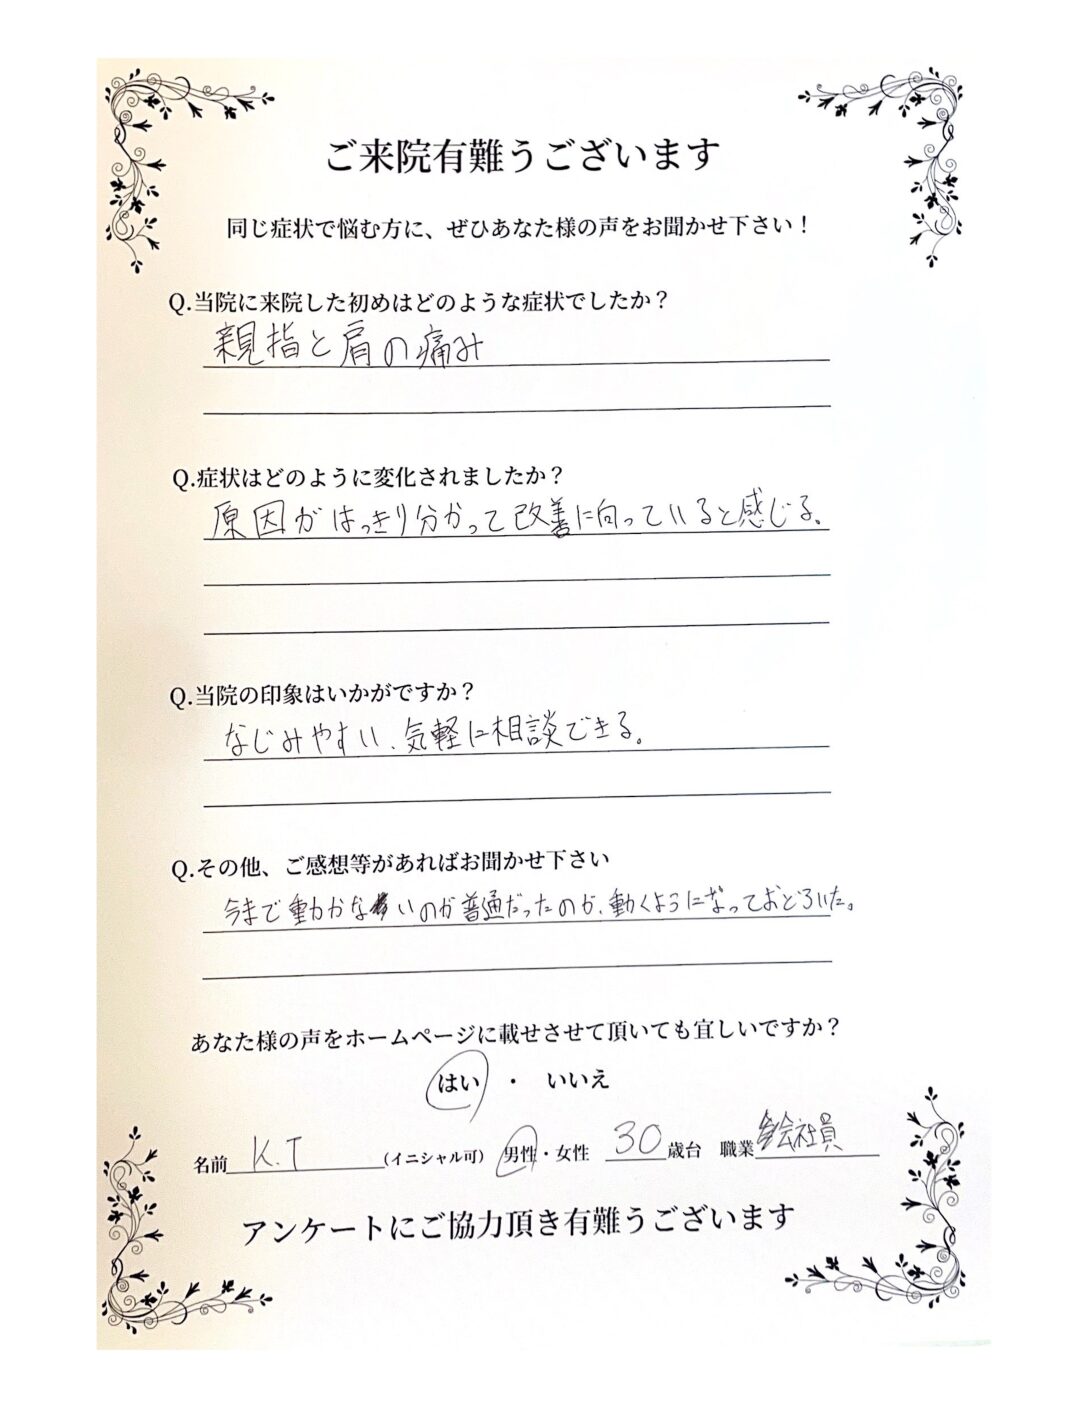 ご来院有難うございます
同じ症状で悩む方に、ぜひあなた様の声をお聞かせ下さい！
Q.当院に来院した初めはどのような症状でしたか？
親指と肩の痛み
Q.症状はどのように変化されましたか？
原因がはっきり分かって改善に向っていると感じる。
Q.当院の印象はいかがですか？
なじみやすい、気軽に相談できる。
Q.その他、ご感想等があればお聞かせ下さい
今まで動かないのが普通だったのが、動くようになっておどろいた。
あなた様の声をホームページに載せさせて頂いても宜しいですか？
はい ・ いいえ
名前 K.T (イニシャル可) 男性・女性 30 歳台 職業 会社員
アンケートにご協力頂き有難うございます